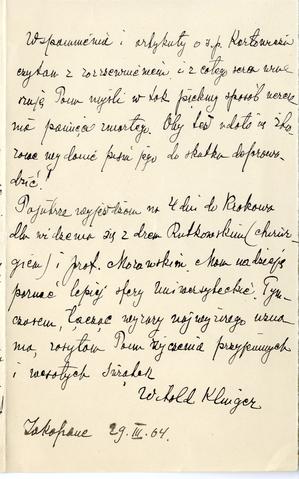 Wspomnienia i artykuły o ś.p. Karłowiczu
czytam z rozrzewnieniem i z całego serca
Panu myśli w tak piękny sposób
pamięć zmarłego. Oby też udało się
wydanie pism jego do skutku doprowa-
dzić!
Pojutrze wyjeżdżam na 4 dni do Krakowa
dla widzenia się z drem Rutkowskim (chirur-
giem) i prof. Morawskim. Mam nadzieję
poznać lepiej sfery Uniwersyteckie. Tym-
czasem, łącząc wyrazy najwyższego uzna-
nia, zasyłam Panu życzenia przyjemnych
i wesołych Świątek
Witold Klinger
Zakopane 29. III. 04.